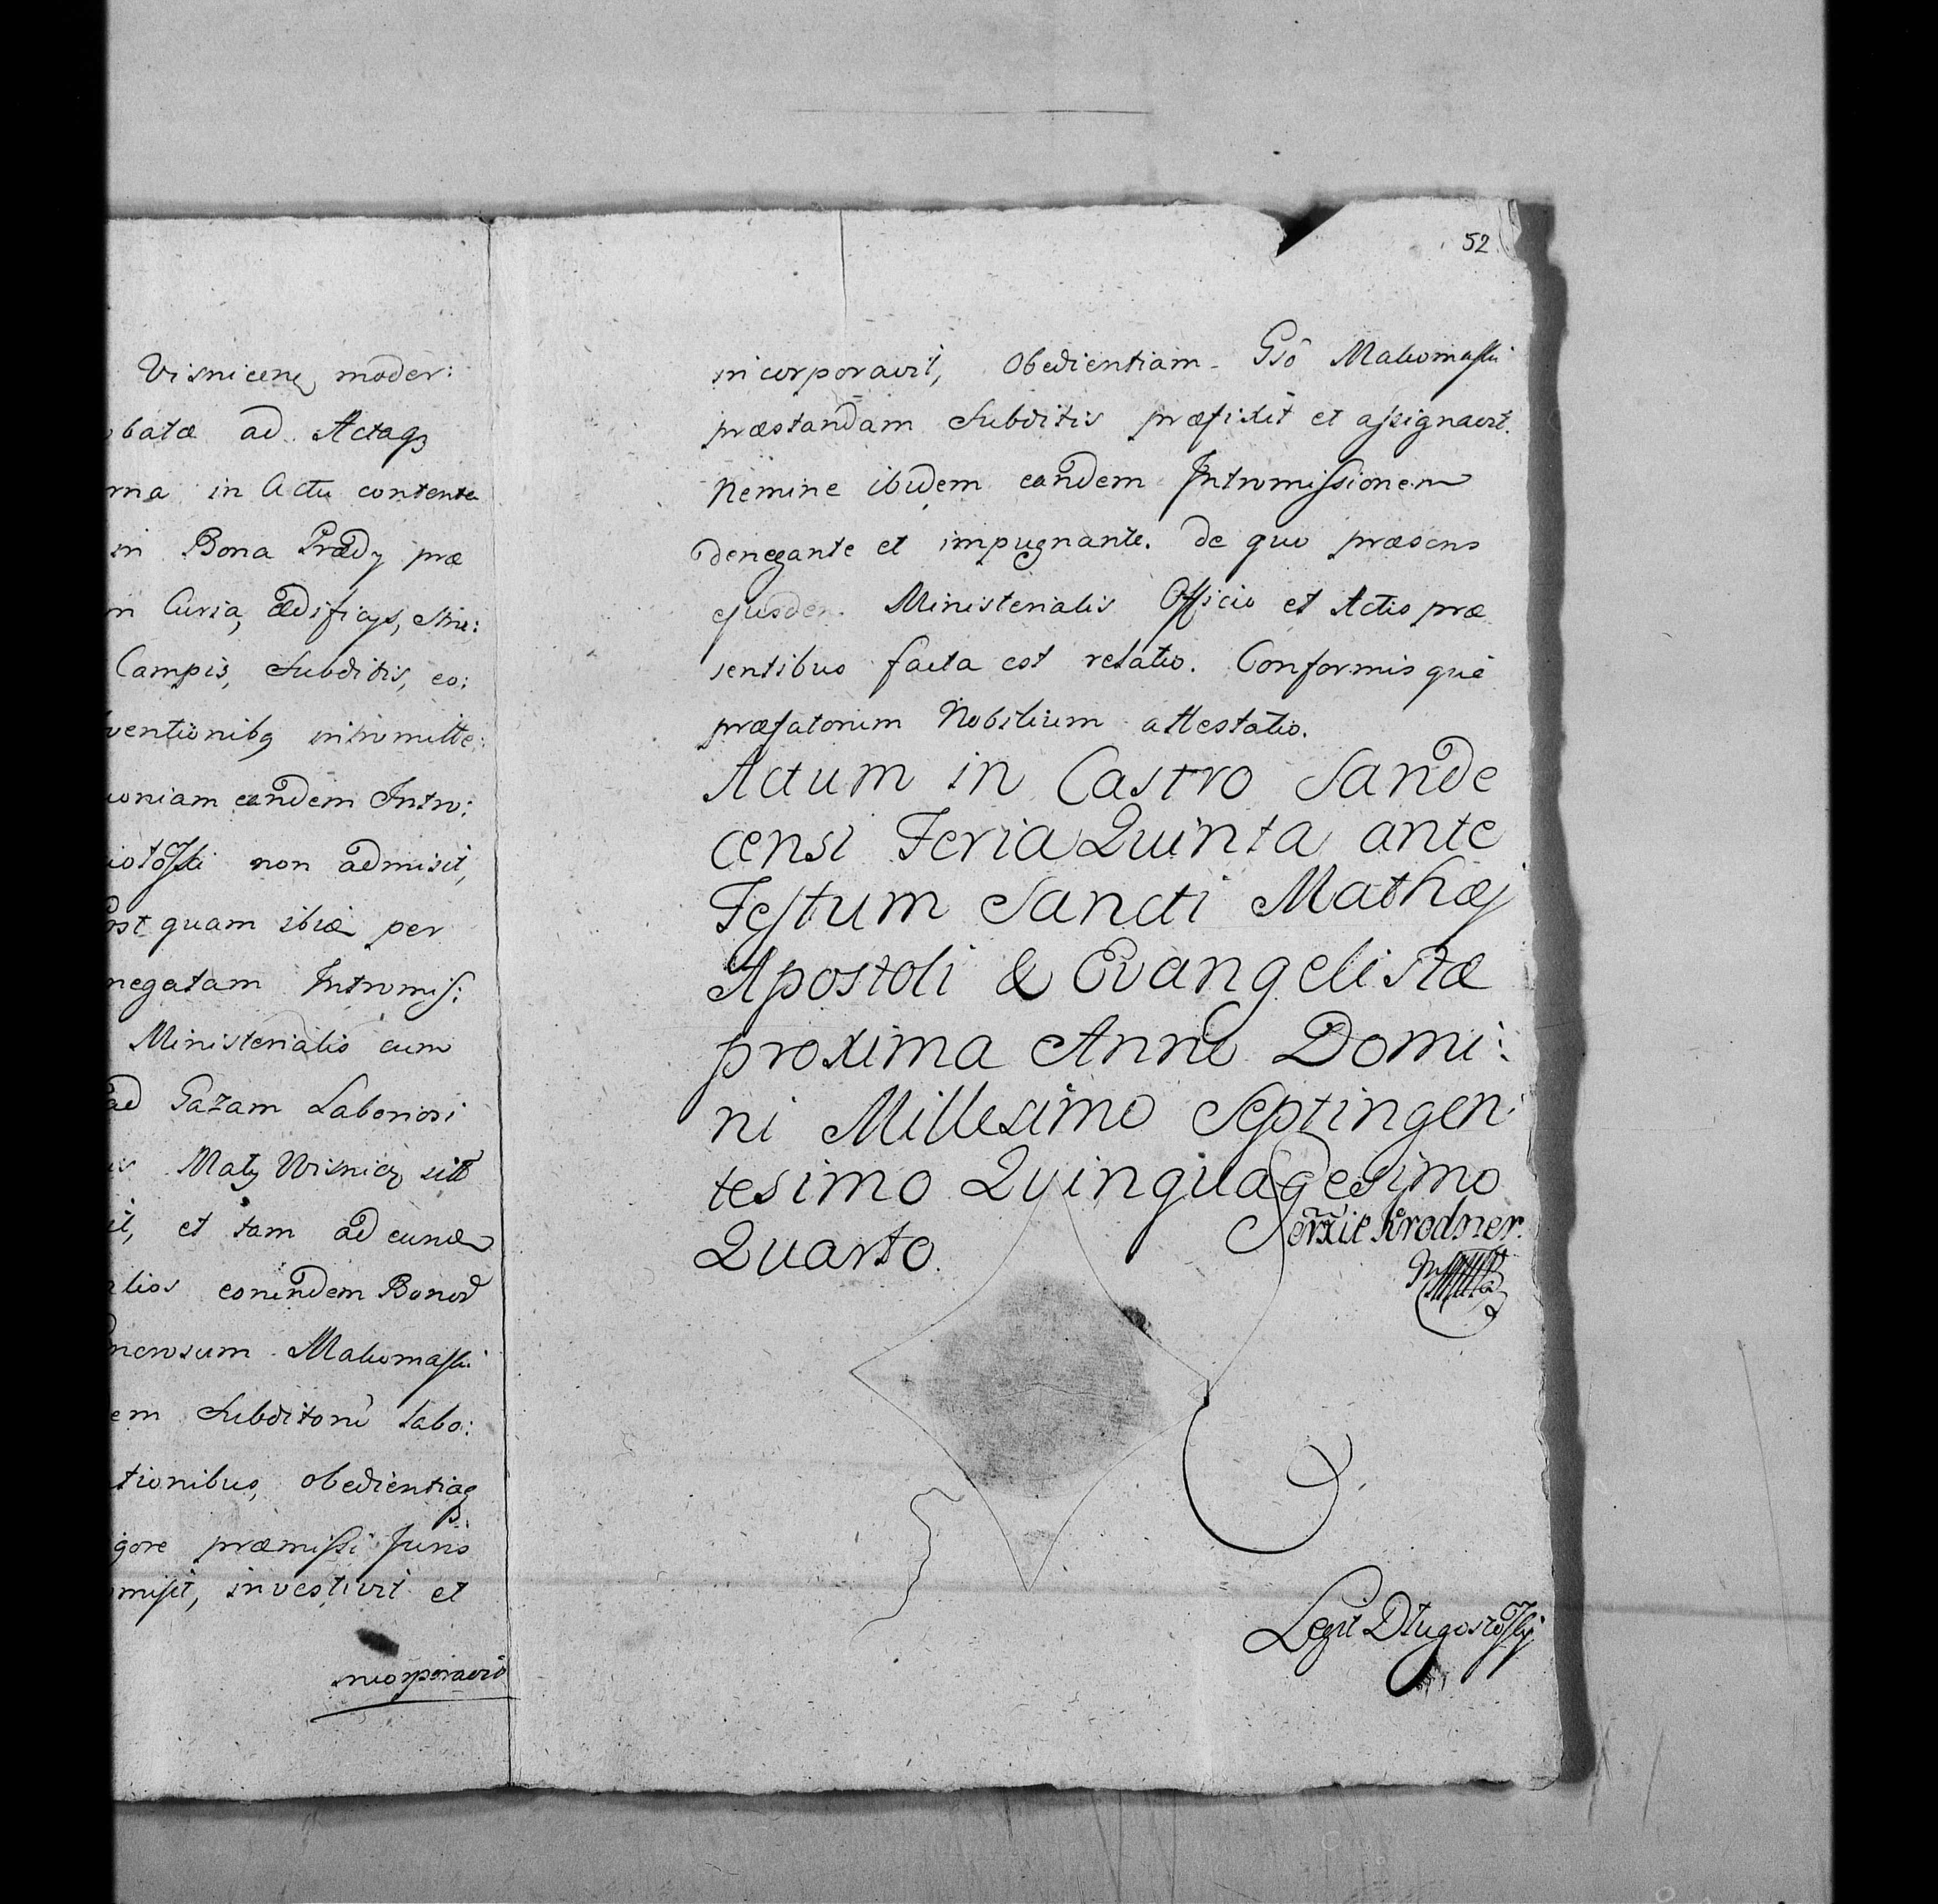 Visnicen moder:
batæ ad Actaq
rna in Actu contenta
in Bona Prædy præ
m Curia, ædificys, Ari:
Campis, Subditis, eo:
ventionibq intromitte:
uoniam eandem Intro:
non admisit,
ost quam ibid per
negatam Intromis:
Ministerialis cum
ad Gazam Laboriosi
Maly Wisnicz sitt
it, et tam ad eund
alios eorundem Bonor
nerosum Malromaski
em Subditorū labo:
tionibus, obedientiaq
gore præmissi Juris
misit, investivit et
incorporavit
52
incorporavit, Obedientiam Gsô Malromaski
præstandam Subditis præfixit et assignavit.
Nemine ibidem eandem Intromissionem
denegante et impugnante. de quo præsens
ejusdem Ministerialis Officio et Actis præ
sentibus facta est relatio. Conformisque
præfatorum Nobilium attestatio.
Actum in Castro Sande
censi Feria Quinta ante
Festum Sancti Mathæj
Apostoli & Evangelistæ
proxima Anno Domi:
ni Millesimo Septingen:
tesimo Quinquagesimo
Quarto.
Correxit Krodner.
Legit Długoszoski